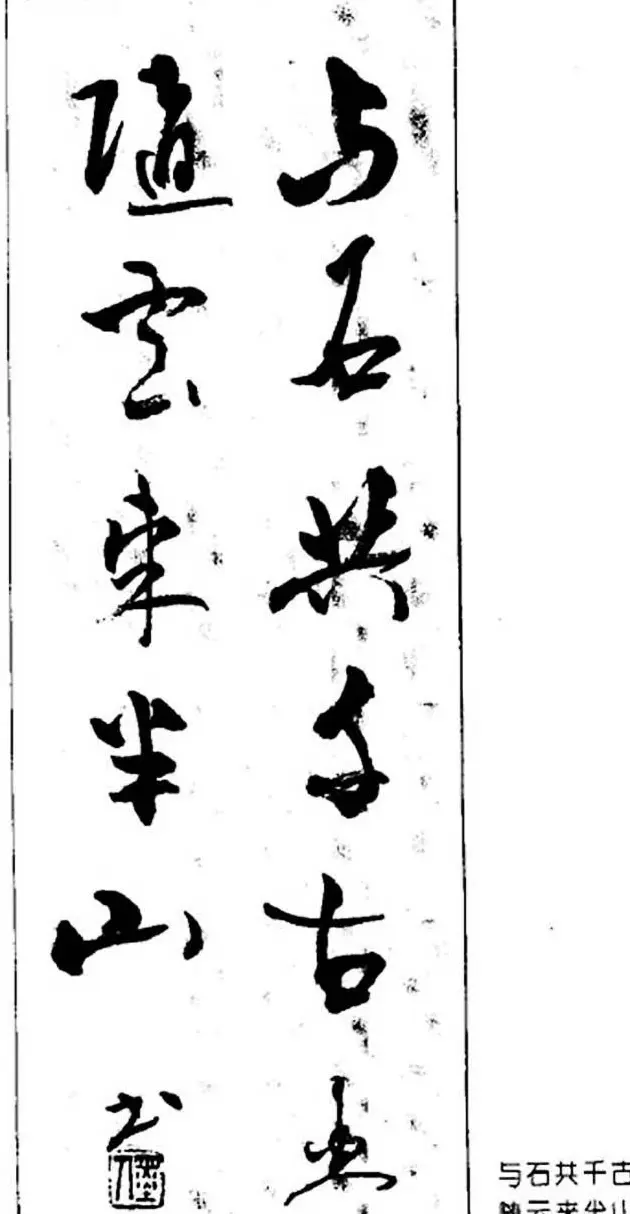 与石共千古
隨雲來半山
书
与石共千古
随云来半山